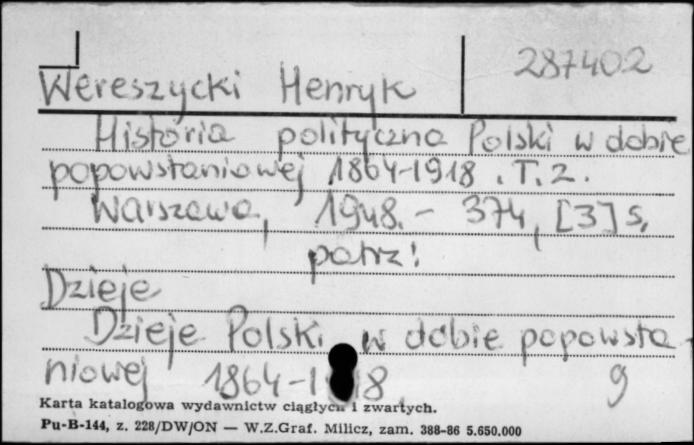 287402
Wereszycki Henryk
Historia polityczna Polski w dobie
popowstaniowej 1864-1918. T. 2.
Warszawa, 1948. - 374, [3] s.
patrz!
Dzieje
Dzieje Polski w dobie popowsta-
niowej 1864-1918 9
Karta katalogowa wydawnictw ciągłych i zwartych.
Pu-B-144, z. 228/DW/ON — W.Z.Graf. Milicz, zam. 388-86 5.650.000